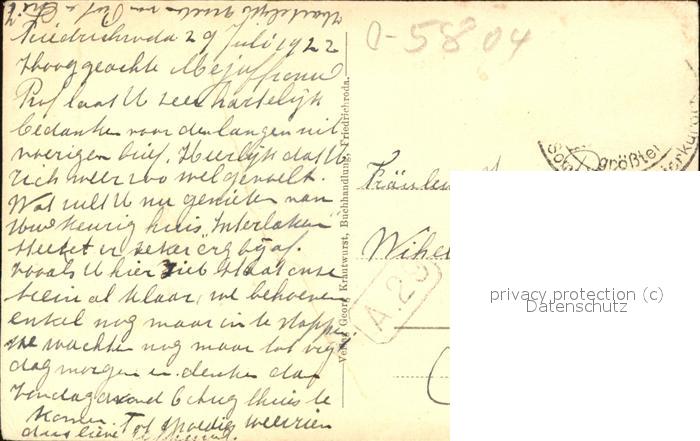 Friedrichroda 29 Juli 1922
Hooggeachte Mejuffrouw
Prof laat U zeer hartelijk
bedanken voor den langen uit
voerigen brief. Heerlijk dat U
zich weer zoo wel gevoelt.
Wat zult U nu genieten van
Uw keurig huis, "Interlaken"
steekt er zeker erg bij af.
Zooals U hier ziet staat onze
trein al klaar, we behoeven
enkel nog maar in te stappen
we wachten nog maar tot vrij
dag morgen en denken dan
Vrijdag avond 6 thuis te
komen. Tot spoedig weerzien
Hartelijk groeten van Prof
O-5804
Verlag Georg Krautwurst, Buchhandlung, Friedrichroda.
größter
Fräulein
A.2
privacy protection (c)
Datenschutz